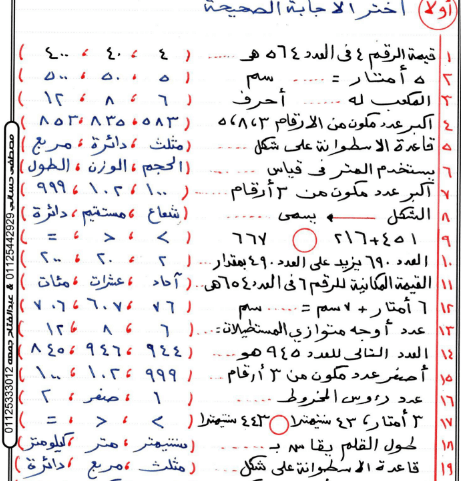 أولاً أختر الاجابة الصحيحة
١ قيمة الرقم ٤ فى العدد ٥٦٤ هى ( ٤ ، ٤٠ ، ٤٠٠
٢ ٥ أمتار = ...... سم ( ٥ ، ٥٠ ، ٥٠٠
٣ المكعب له ...... أحرف ( ٦ ، ٨ ، ١٢
٤ أكبر عدد مكون من الأرقام ٣، ٨، ٥ ( ٥٨٣، ٨٣٥ ، ٨٥٣
٥ قاعدة الاسطوانة على شكل ( مثلث ، دائرة ، مربع
٦ يستخدم المتر فى قياس ...... (الحجم ، الوزن ، الطول
٧ أكبر عدد مكون من ٣ أرقام ( ١٠٠ ، ١٠٢ ، ٩٩٩
٨ الشكل يسمى ...... ( شعاع ، مستقيم ، دائرة
٩ ٤٥١ + ٢١٦ ◯ ٦٦٧ ( > ، < ، =
١٠ العدد ٦٩٠ يزيد على العدد ٤٩٠ بمقدار ( ٢ ، ٢٠ ، ٢٠٠
١١ القيمة المكانية للرقم ٦ فى العدد ٦٥٤ هى ( آحاد ، عشرات ، مئات
١٢ ٦ أمتار + ٧ سم = ...... سم ( ٧٦ ، ٦٠٧ ، ٧٠٦
١٣ عدد أوجه متوازى المستطيلات = ( ٦ ، ٨ ، ١٢
١٤ العدد التالى للعدد ٩٤٥ هو ...... ( ٩٤٤ ، ٩٤٦ ، ٨٤٥
١٥ أصغر عدد مكون من ٣ أرقام ( ٩٩٩ ، ١٠٢ ، ١٠٠
١٦ عدد رءوس المخروط ...... ( ١ ، صفر ، ٢
١٧ ٣ أمتار، ٤٣ سنتيمترا ◯ ٤٤٣ سنتيمترا ( > ، < ، =
١٨ طول القلم يقاس بـ ...... ( سنتيمتر ، متر ، كيلومتر
١٩ قاعدة الاسطوانة على شكل ( مثلث ، مربع ، دائرة
01125333012 عبدالفتاح جمعه & 01125442929 مصطفى حسانى